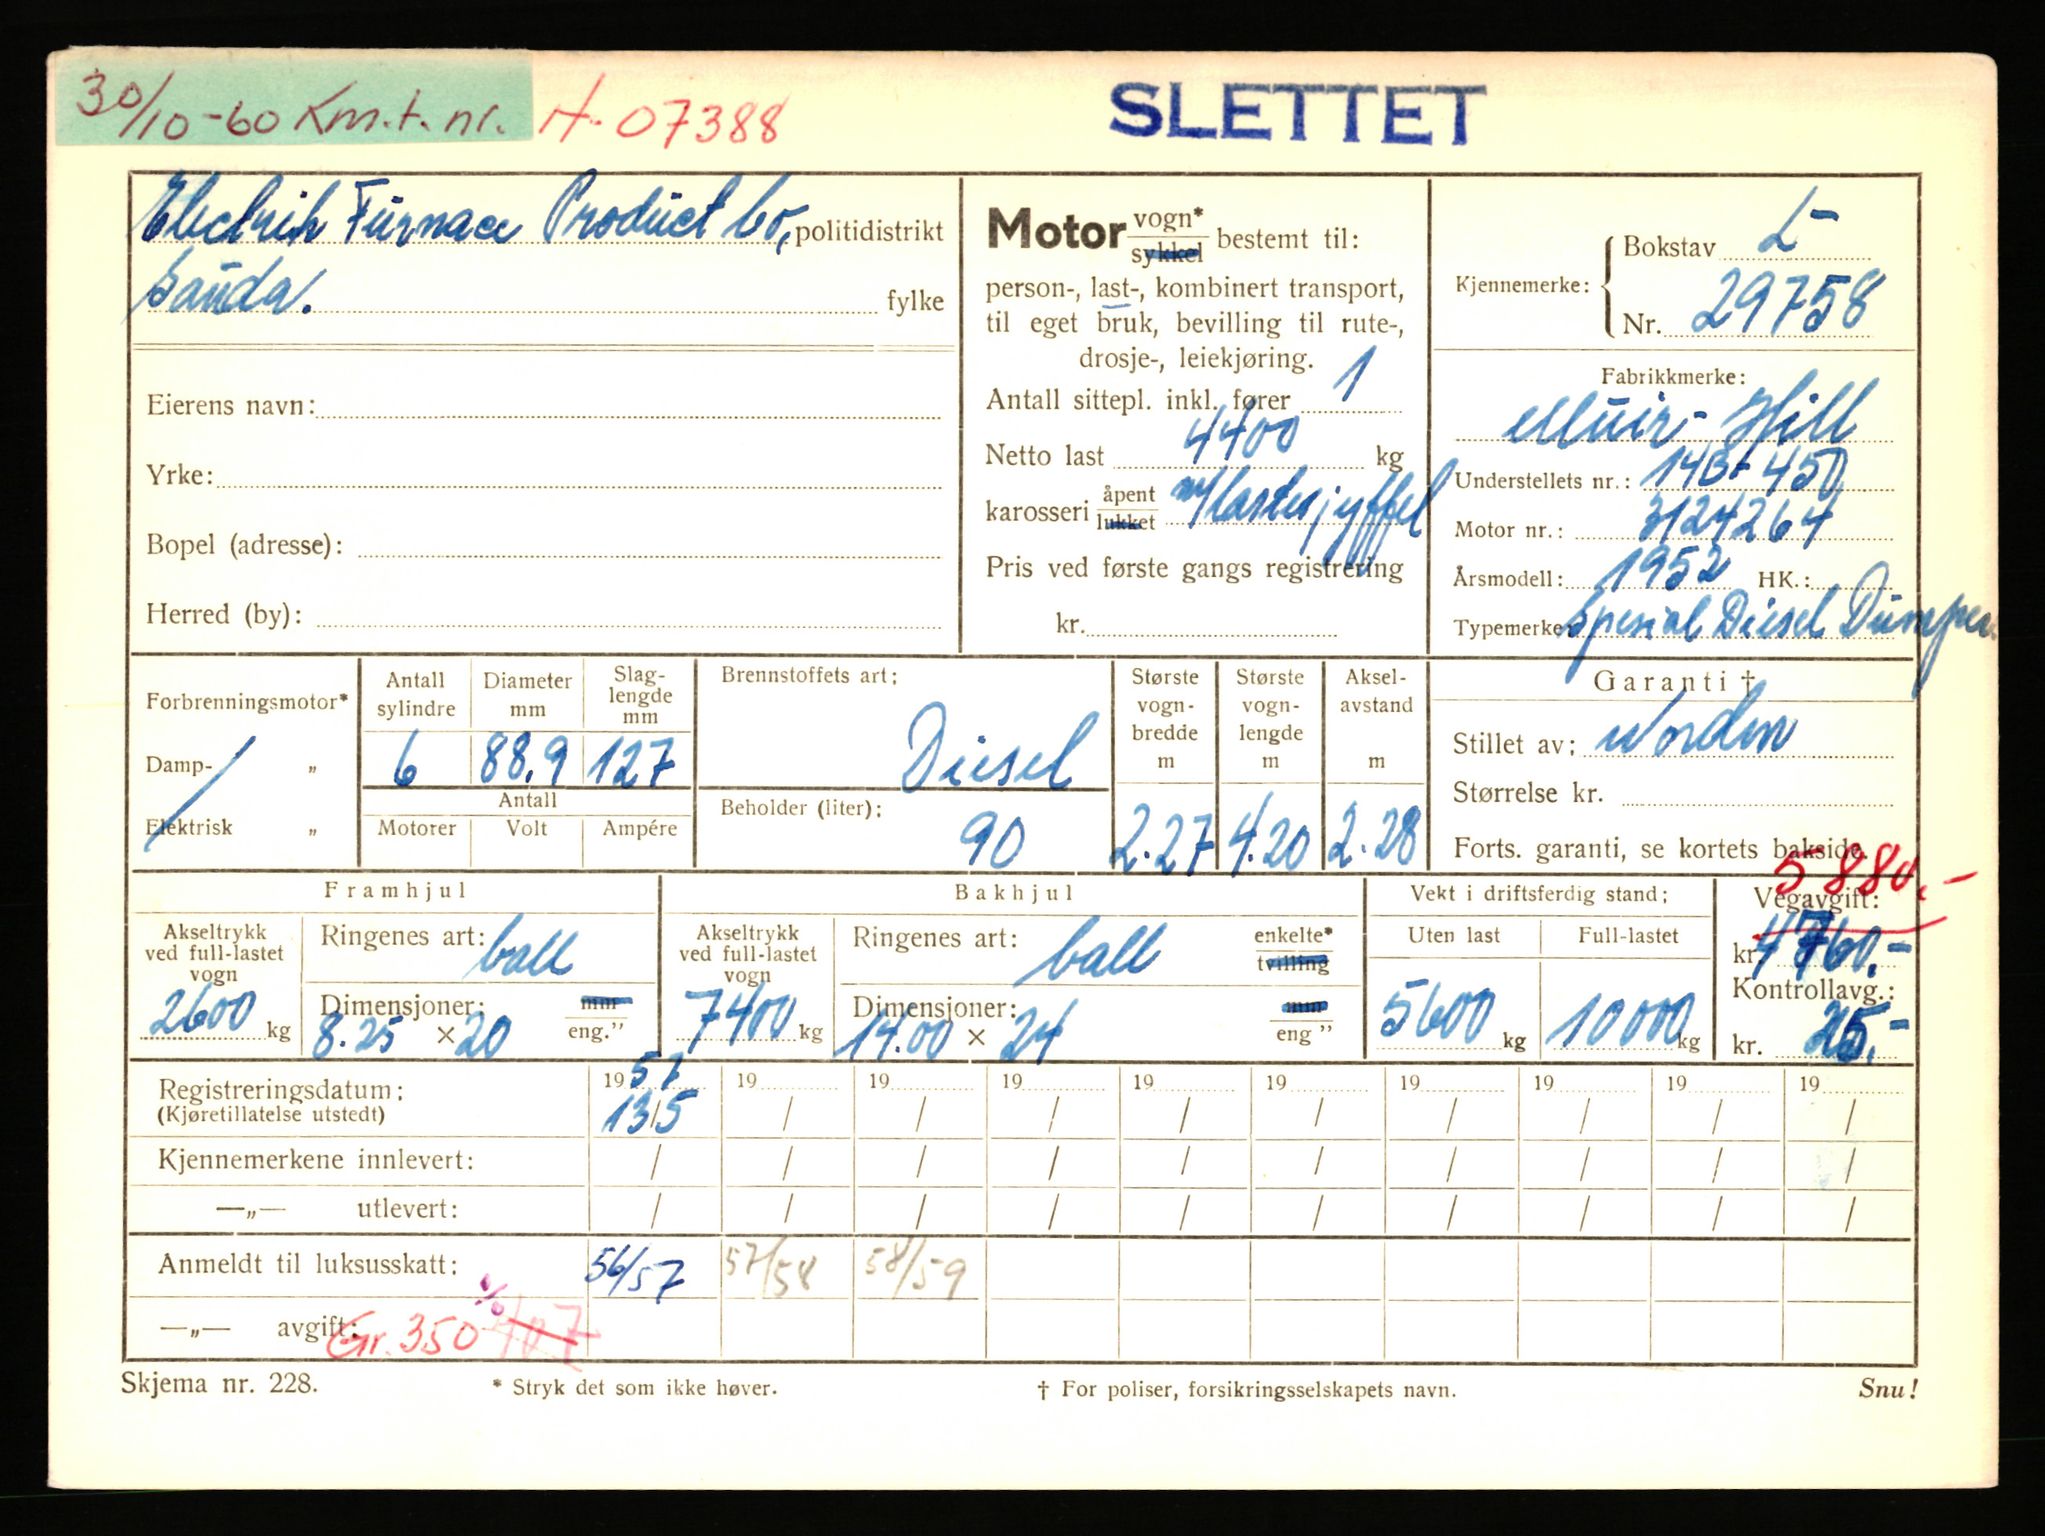 30/10-60 Km.t.nr. H-07388
SLETTET
Electrik Furnace Product Co, politidistrikt
Sauda. fylke
Eierens navn:
Yrke:
Bopel (adresse):
Herred (by):
Motor vogn* sykkel bestemt til:
person-, last-, kombinert transport,
til eget bruk, bevilling til rute-,
drosje-, leiekjøring.
Antall sittepl. inkl. fører 1
Netto last 4400 kg
karosseri åpent lukket m/lastesjyffel
Pris ved første gangs registrering
kr.
Kjennemerke: Bokstav L-
Nr. 29758
Fabrikkmerke:
Muir-Hill
Understellets nr.: 14B-450
Motor nr.: 3124264
Årsmodell: 1952 HK.:
Typemerke: Spesial Diesel Dumper
Forbrenningsmotor*
Damp- „
Elektrisk „
Antall sylindre 6
Diameter mm 88,9
Slag-lengde mm 127
Antall
Motorer Volt Ampére
Brennstoffets art: Diesel
Beholder (liter): 90
Største vogn-bredde m 2.27
Største vogn-lengde m 4.20
Aksel-avstand m 2.28
Garanti †
Stillet av: Norden
Størrelse kr.
Forts. garanti, se kortets bakside.
Framhjul
Akseltrykk ved full-lastet vogn 2600 kg
Ringenes art: ball
Dimensjoner: 8.25 × 20 mm eng."
Bakhjul
Akseltrykk ved full-lastet vogn 7400 kg
Ringenes art: ball enkelte* tvilling
Dimensjoner: 14.00 × 24 mm eng "
Vekt i driftsferdig stand:
Uten last 5600 kg
Full-lastet 10000 kg
5880,-
Vegavgift:
kr. 4760,-
Kontrollavg.:
kr. 25,-
Registreringsdatum: 1957 19 19 19 19 19 19 19 19 19
(Kjøretillatelse utstedt) 13/5 / / / / / / / / /
Kjennemerkene innlevert: / / / / / / / / / /
—„— utlevert: / / / / / / / / / /
Anmeldt til luksusskatt: 56/57 57/58 58/59
—„— avgift: Gr. 350
Skjema nr. 228. * Stryk det som ikke høver. † For poliser, forsikringsselskapets navn. Snu!